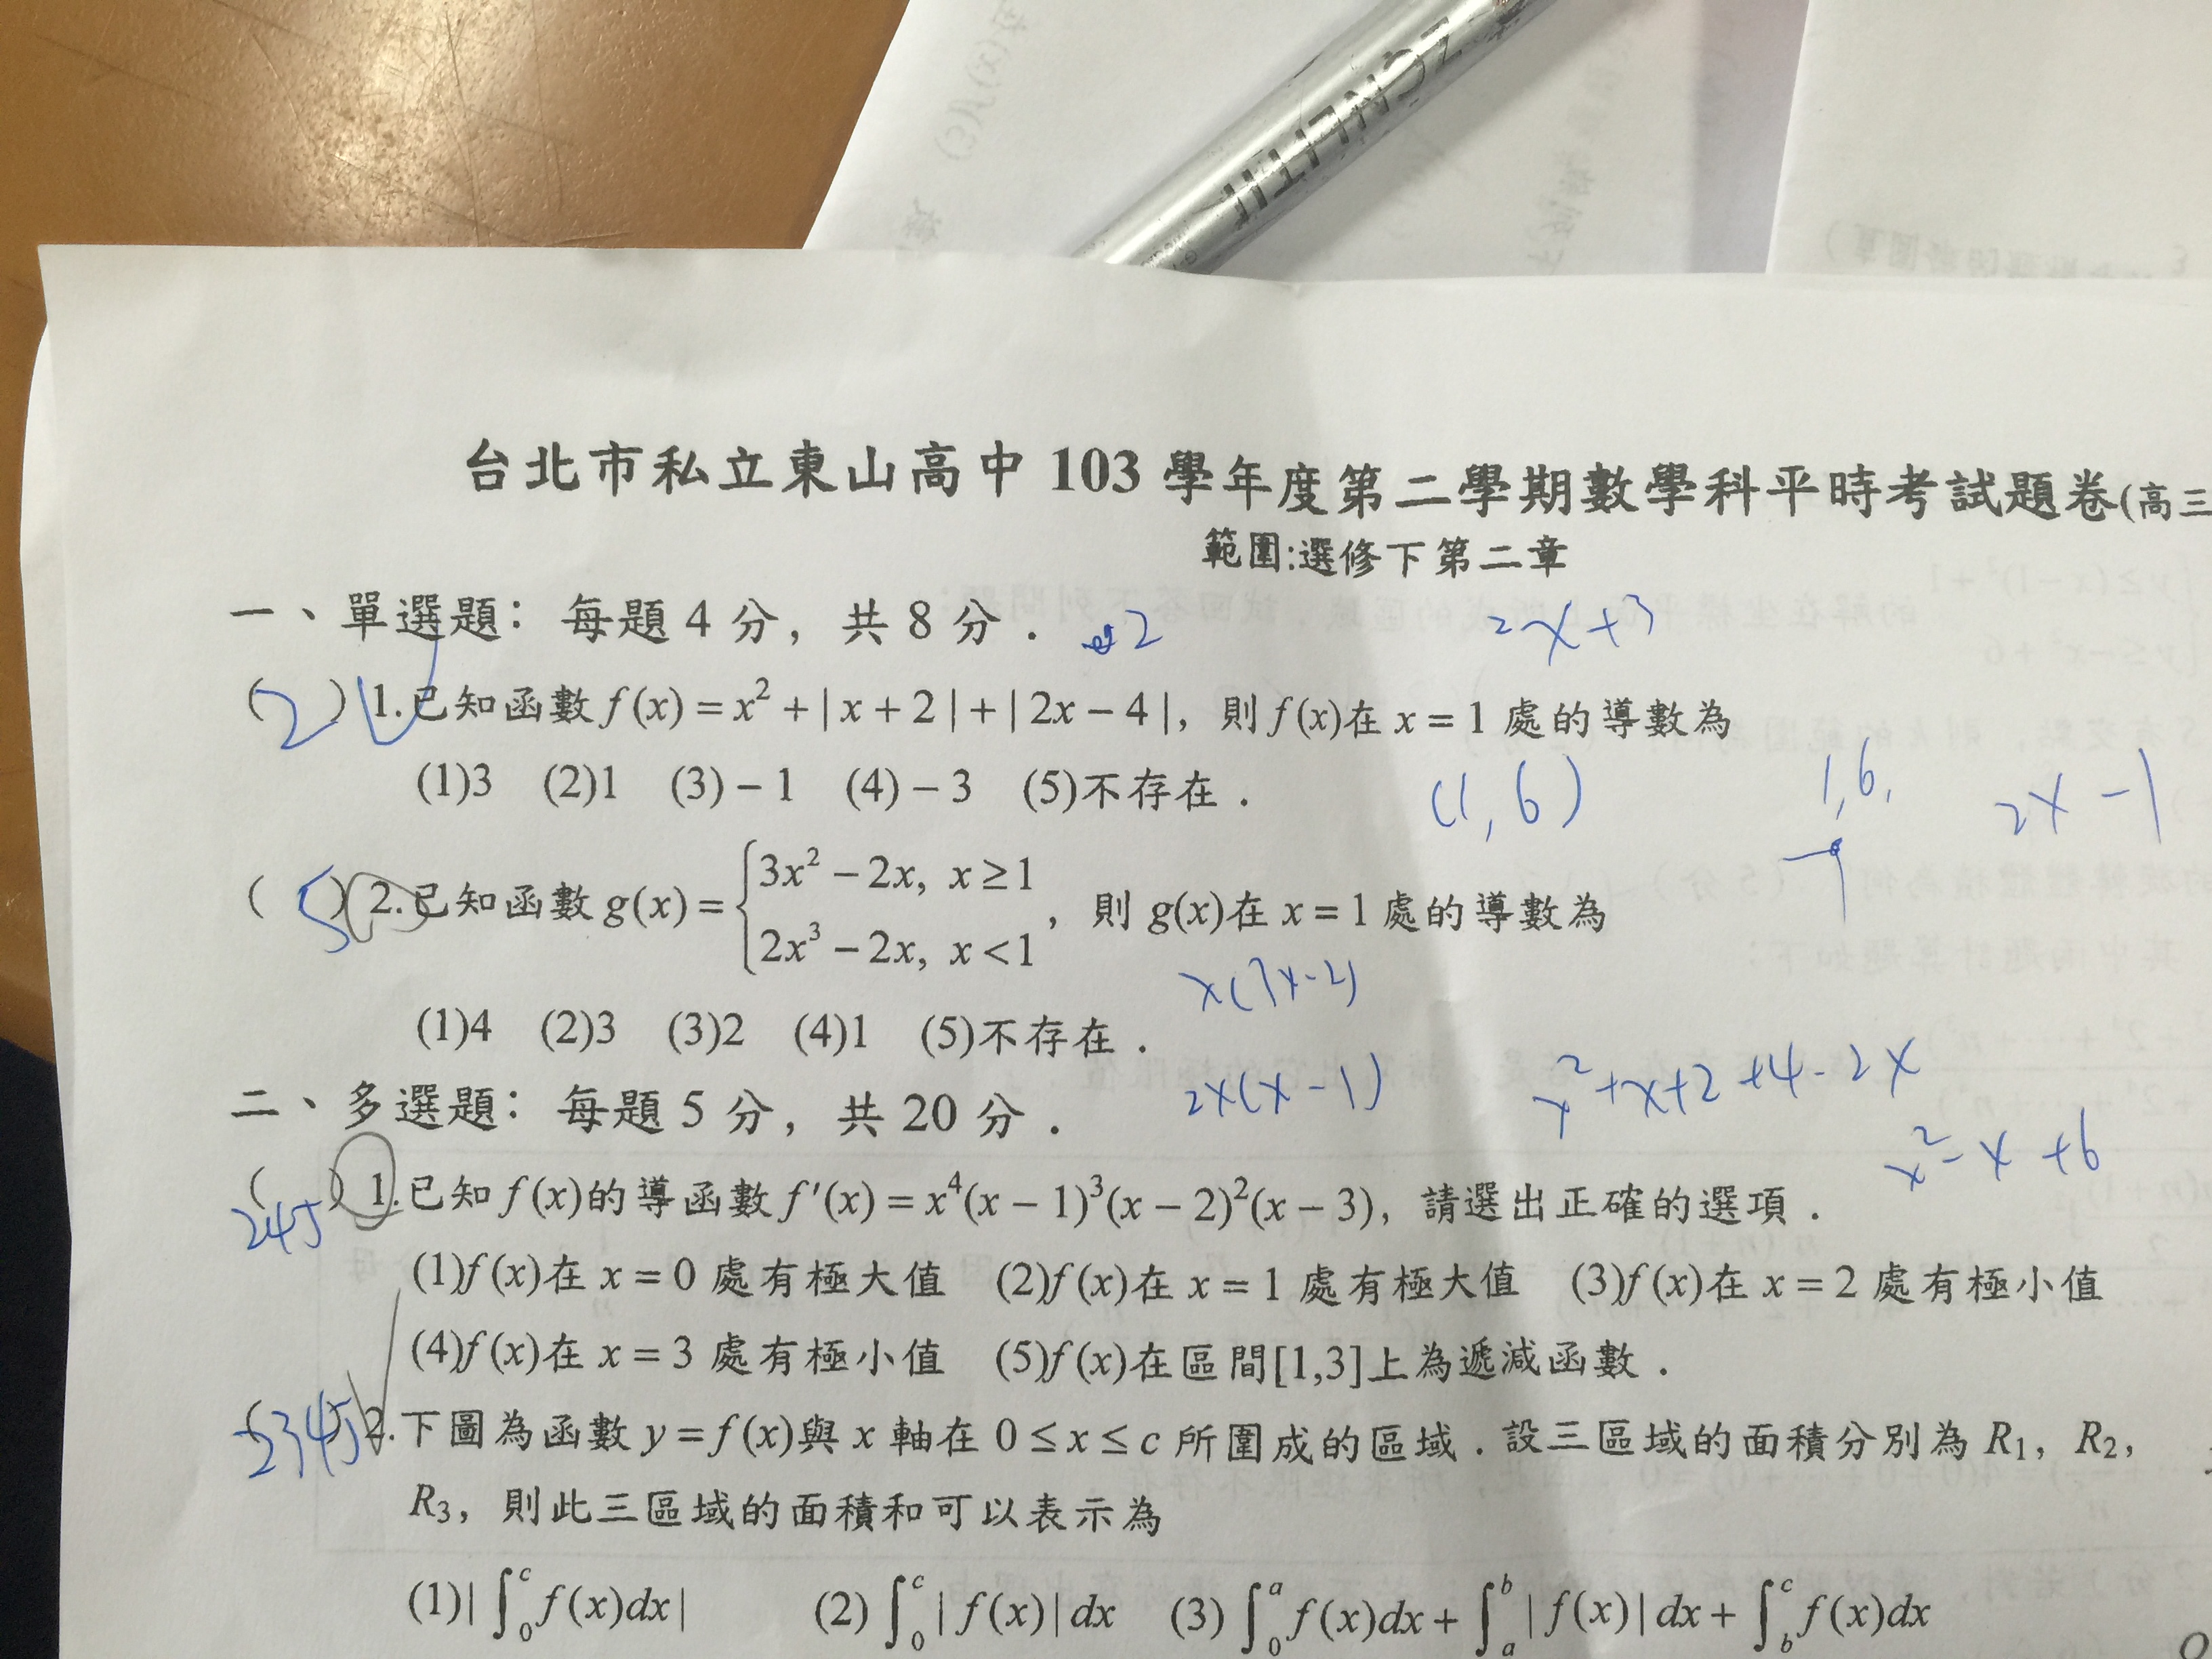 台北市私立東山高中 103 學年度第二學期數學科平時考試題卷(高三
範圍:選修下第二章
一、單選題：每題 4 分，共 8 分．
2
2x+3
(2) 1.已知函數 f(x) = x² + | x + 2 | + | 2x − 4 |，則 f(x)在 x = 1 處的導數為
(1)3 (2)1 (3) − 1 (4) − 3 (5)不存在．
(1,6)
1,6,
2x-1
(5) 2.已知函數 g(x) = { 3x² − 2x, x ≥ 1
2x³ − 2x, x < 1 ，則 g(x)在 x = 1 處的導數為
x(3x-2)
(1)4 (2)3 (3)2 (4)1 (5)不存在．
2x(x-1)
x²+x+2+4-2x
x²-x+6
二、多選題：每題 5 分，共 20 分．
(245) 1.已知 f(x)的導函數 f′(x) = x⁴(x − 1)³(x − 2)²(x − 3)，請選出正確的選項．
(1)f(x)在 x = 0 處有極大值 (2)f(x)在 x = 1 處有極大值 (3)f(x)在 x = 2 處有極小值
(4)f(x)在 x = 3 處有極小值 (5)f(x)在區間[1,3]上為遞減函數．
(2345) 2.下圖為函數 y = f(x)與 x 軸在 0 ≤ x ≤ c 所圍成的區域．設三區域的面積分別為 R₁，R₂，
R₃，則此三區域的面積和可以表示為
(1)| ∫₀ᶜ f(x)dx | (2) ∫₀ᶜ | f(x) | dx (3) ∫₀ᵃ f(x)dx + ∫ₐᵇ | f(x) | dx + ∫_b^c f(x)dx